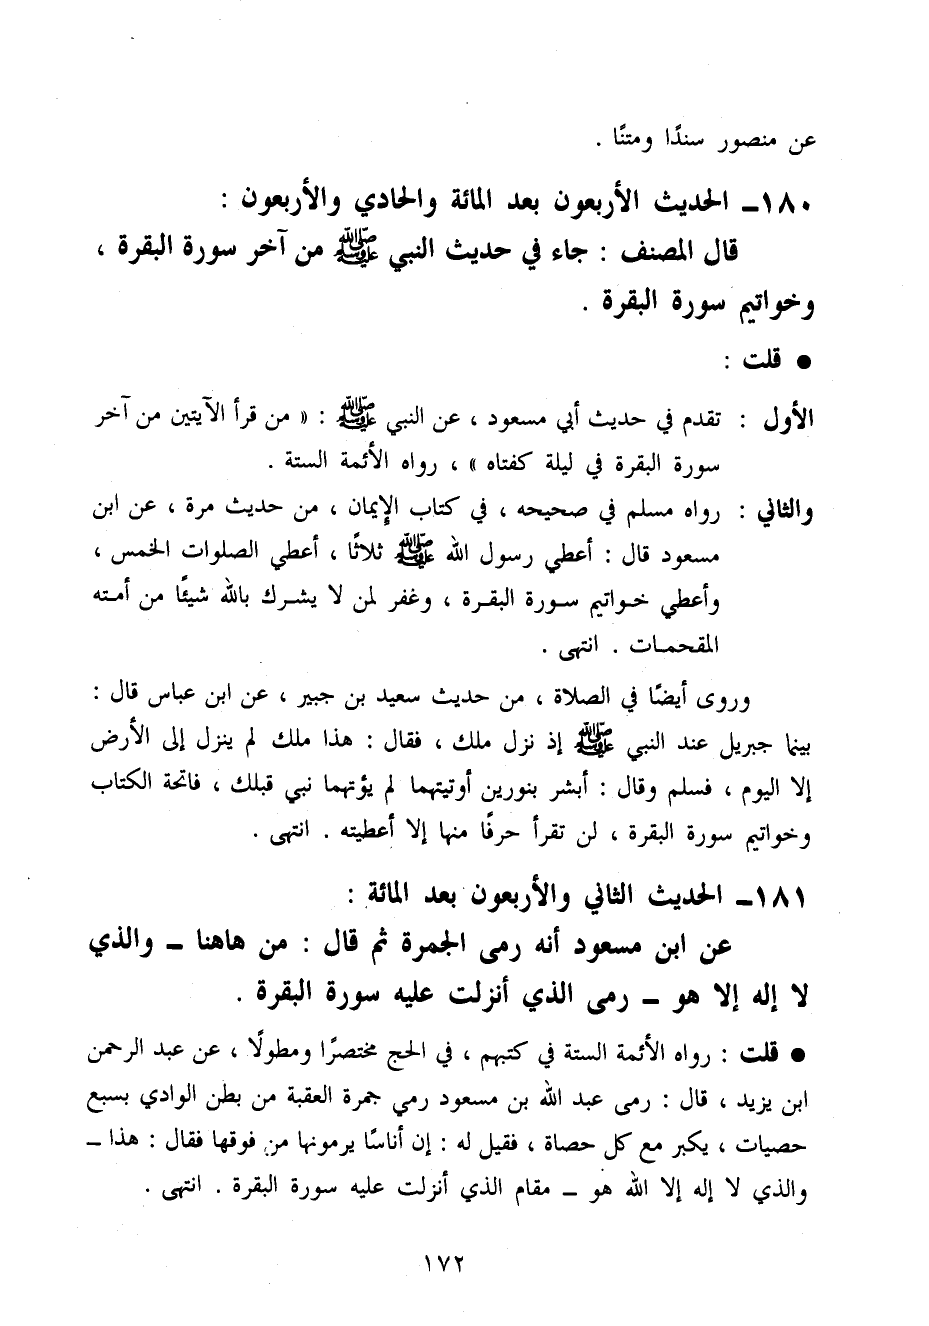 عن منصور سندًا ومتنًا .
١٨٠ـ الحديث الأربعون بعد المائة والحادي والأربعون :
قال المصنف : جاء في حديث النبي ﷺ من آخر سورة البقرة ،
وخواتيم سورة البقرة .
● قلت :
الأول : تقدم في حديث أبي مسعود ، عن النبي ﷺ : « من قرأ الآيتين من آخر
سورة البقرة في ليلة كفتاه » ، رواه الأئمة الستة .
والثاني : رواه مسلم في صحيحه ، في كتاب الإيمان ، من حديث مرة ، عن ابن
مسعود قال : أعطي رسول الله ﷺ ثلاثًا ، أعطي الصلوات الخمس ،
وأعطي خواتيم سورة البقرة ، وغفر لمن لا يشرك بالله شيئًا من أمته
المقحمات . انتهى .
وروى أيضًا في الصلاة ، من حديث سعيد بن جبير ، عن ابن عباس قال :
بينما جبريل عند النبي ﷺ إذ نزل ملك ، فقال : هذا ملك لم ينزل إلى الأرض
إلا اليوم ، فسلم وقال : أبشر بنورين أوتيتهما لم يؤتهما نبي قبلك ، فاتحة الكتاب
وخواتيم سورة البقرة ، لن تقرأ حرفًا منها إلا أعطيته . انتهى .
١٨١ـ الحديث الثاني والأربعون بعد المائة :
عن ابن مسعود أنه رمى الجمرة ثم قال : من هاهنا ـ والذي
لا إله إلا هو ـ رمى الذي أنزلت عليه سورة البقرة .
● قلت : رواه الأئمة الستة في كتبهم ، في الحج مختصرًا ومطولًا ، عن عبد الرحمن
ابن يزيد ، قال : رمى عبد الله بن مسعود رمي جمرة العقبة من بطن الوادي بسبع
حصيات ، يكبر مع كل حصاة ، فقيل له : إن أناسًا يرمونها من فوقها فقال : هذا ـ
والذي لا إله إلا الله هو ـ مقام الذي أنزلت عليه سورة البقرة . انتهى .
١٧٢